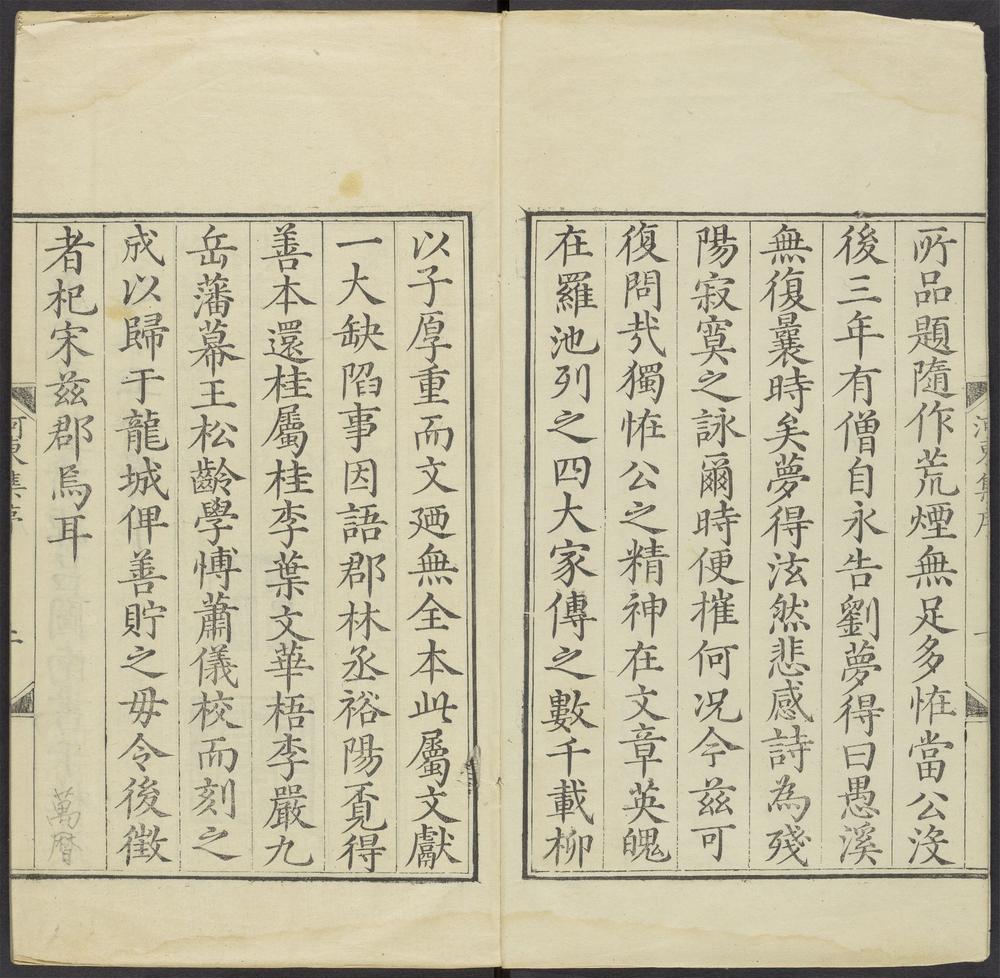 河東集序
所品題隨作荒煙無足多恠當公沒
後三年有僧自永告劉夢得曰愚溪
無復曩時矣夢得泫然悲感詩為殘
陽寂寞之詠爾時便摧何况今茲可
復問㢤獨恠公之精神在文章英魄
在羅池列之四大家傳之數千載柳
以子厚重而文廼無全本此屬文獻
一大缺陷事因語郡林丞裕陽覔得
善本還桂屬桂李葉文華梧李嚴九
岳藩幕王松齡學愽蕭儀校而刻之
成以歸于龍城俾善貯之毋令後徵
者杞宋茲郡焉耳
萬曆
河東集序
二